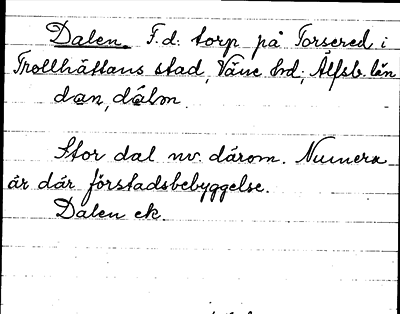 Dalen. F.d. torp på Torsered i
Trollhättans stad, Väne hd, Älfsb. län
dan, dálen.
Stor dal nv. därom. Numera
är där förstadsbebyggelse.
Dalen ek.